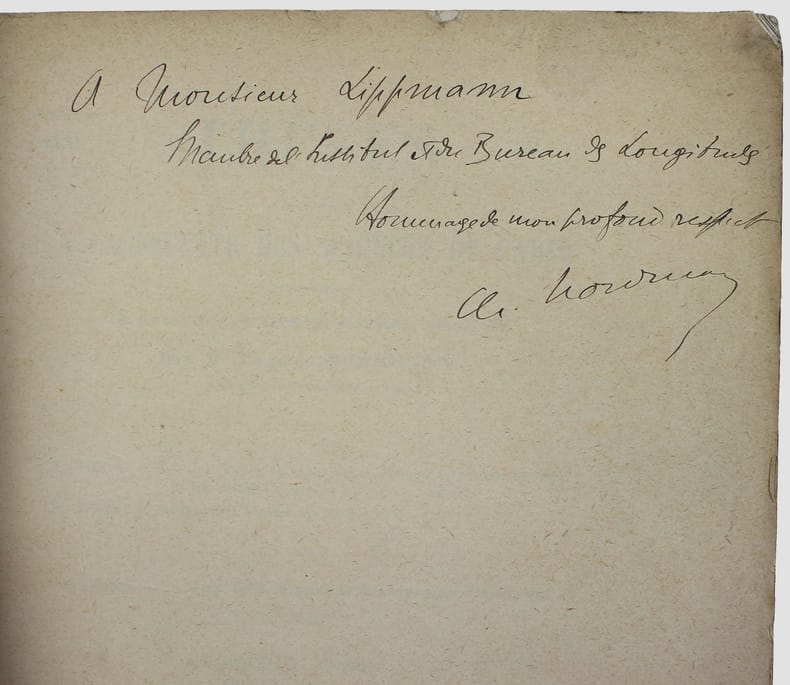 A Monsieur Lippmann
Membre de l'Institut et du Bureau des Longitudes
Hommage de mon profond respect
Ch. Nordmann